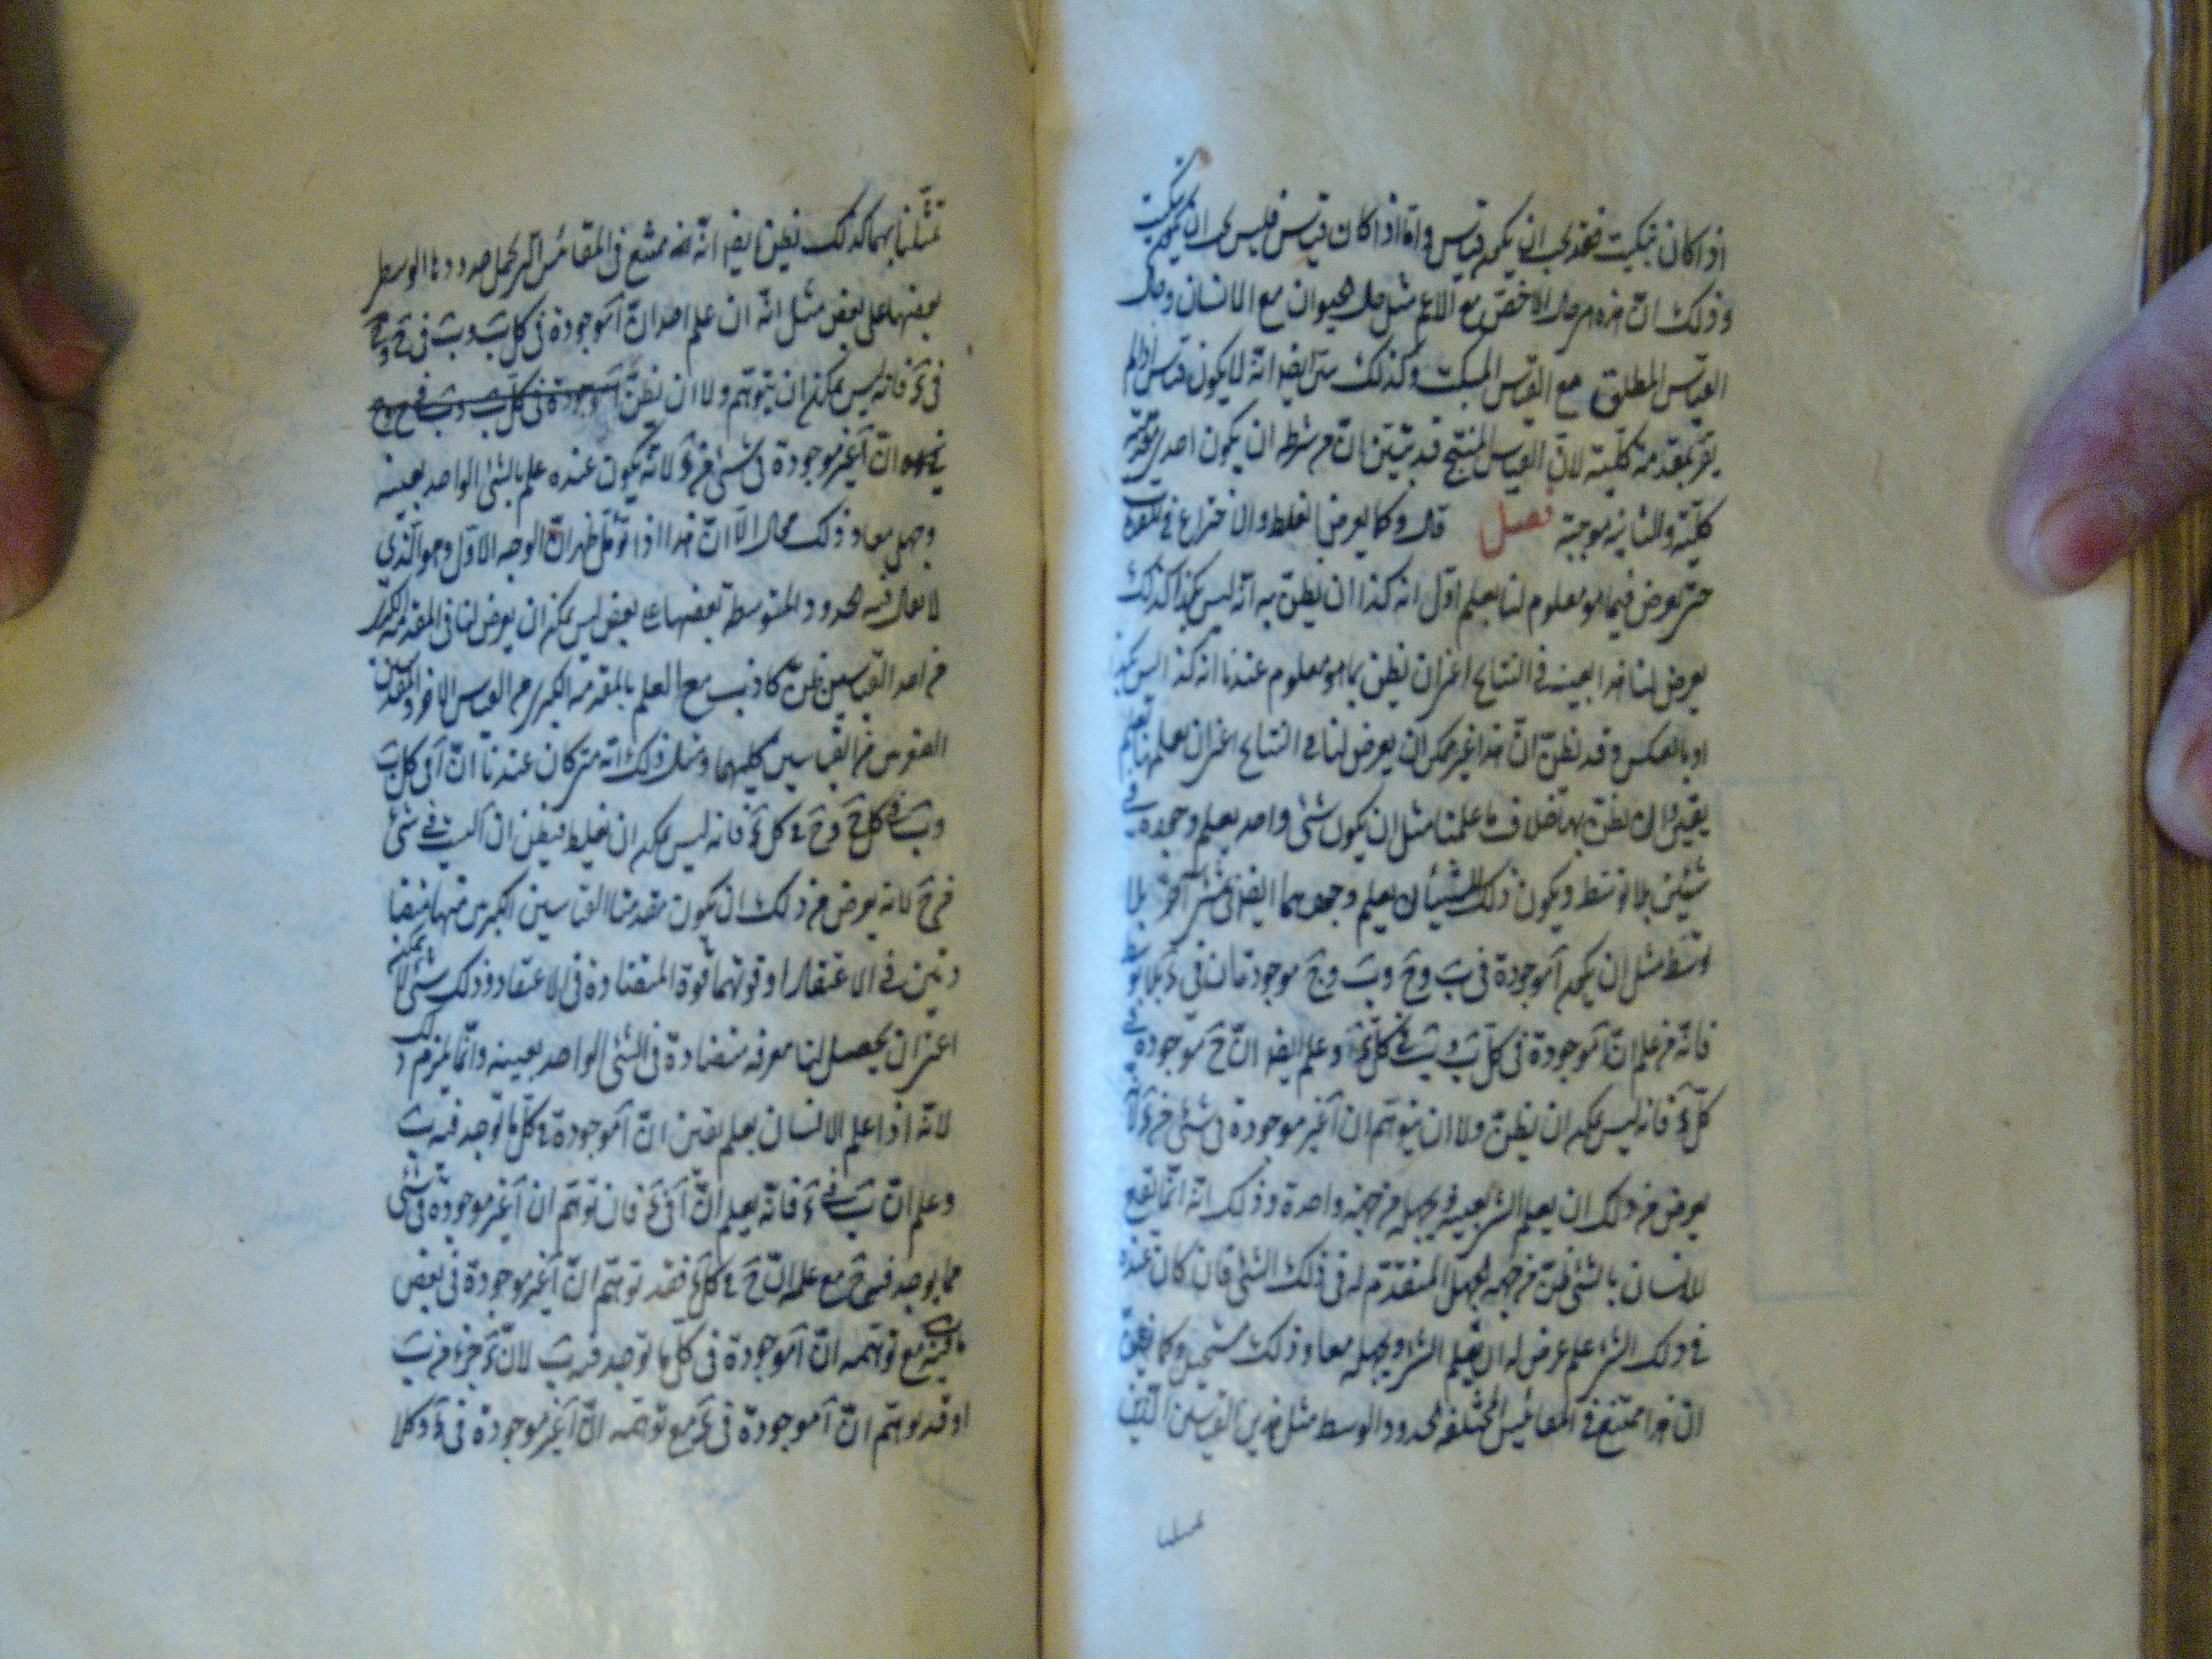 اذا كان تبكيت فقد يجب ان يكون قياس واما اذا كان قياس فليس يجب ان يكون تبكيت
وذلك ان هذه هي حال الاخص مع الاعم مثل حال الحيوان مع الانسان وحال
القياس المطلق مع القياس المبكت وكذلك متى ايضا انه لا يكون قياس اذا لم
يقر بمقدمة كلية لان القياس المنتج قد تبين ان من شرطه ان يكون احدى مقدمتيه
كلية والثانية موجبة فصل قال وكما يعرض الغلط والانخداع في
حتى يعرض فيما هو معلوم لنا بعلم اول انه كذا ان يظن به انه ليس بكذا كذلك
يعرض لنا هذا بعينه في النتايج اعني ان يظن بما هو معلوم عندنا انه كذا ليس بكذا
او بالعكس وقد يظن ان هذا غير ممكن ان يعرض لنا في النتايج اعني ان يعلمها
يقين وان يظن بها خلاف ما علمنا مثل ان يكون شئ واحد يعلم وجوده
شيئين بلا توسط ويكون ذلك الشيئان يعلم وجودهما ايضا في شئ آخر بلا
توسط مثل ان يكون آ موجودة في بَ وحَ وبَ وحَ موجودتان في ءَ
فانه من علم ان آ موجودة في كل بَ وبَ في كل ءَ وعلم ايضا ان حَ موجودة
كل ءَ فانه ليس يمكن ان يظن ولا ان يتوهم ان آ غير موجودة في شئ من ءَ
يعرض من ذلك ان يعلم الشئ بعينه ويجهله من جهة واحدة وذلك انه انما يقع
للانسان بالشئ ظن من جهة الجهل المتقدم له في ذلك الشئ فان كان عنده
في ذلك الشئ علم عرض له ان يعلم الشئ ويجهله معا وذلك مستحيل وكما يظن
ان هذا ممتنع في المقائيس المختلفة الحدود الوسط مثل هذين القياسين
تمثلنا بهما كذلك يظن ايضا انه ممتنع في المقائيس التي تحمل حدودها الوسط
بعضها على بعض مثل انه ان علم احد ان آ موجودة في كل بَ وبَ في حَ وحَ
في ءَ فانه ليس يمكن ان يتوهم ولا ان يظن
ان آ غير موجودة في شئ من ءَ لانه يكون عنده علم بالشئ الواحد بعينه
وجهل معا وذلك محال الا ان هذا اذا تؤمل ظهر ان الوجه الاول وهو الذي
لا يقال فيه الحدود المتوسطة بعضها على بعض ليس يمكن ان يعرض لنا في المقدمة الكبرى
من احد القياسين ظن كاذب مع العلم بالمقدمة الكبرى من القياس الاخر
من القياسين كليهما ومثال ذلك انه متى كان عندنا ان آ في كل بَ
وبَ في كل حَ وحَ في كل ءَ فانه ليس يمكن ان نغلط فيظن ان آ ليست في شئ
من حَ لانه يعرض من ذلك ان يكون مقدمتا القياسين الكبريين منهما متضا
دتين في الاعتقاد او قوتهما قوة المتضادة في الاعتقاد وذلك شئ لا يمكن
اعني ان يحصل لنا معرفة متضادة في الشئ الواحد بعينه وانما لزم ذلك
لانه اذا علم الانسان بعلم يقين ان آ موجودة في كل ما توجد فيه بَ
وعلم ان بَ في ءَ فانه يعلم ان آ في ءَ فان توهم ان آ غير موجودة في شئ
مما يوجد فيه حَ مع علمه ان حَ في كل ءَ فقد توهم ان آ غير موجودة في بعض
ما فيه بَ مع توهمه ان آ موجودة في كل ما توجد فيه بَ لان ءَ جزء من بَ
او قد توهم ان آ موجودة في ءَ مع توهمه ان آ غير موجودة في ءَ وكلا